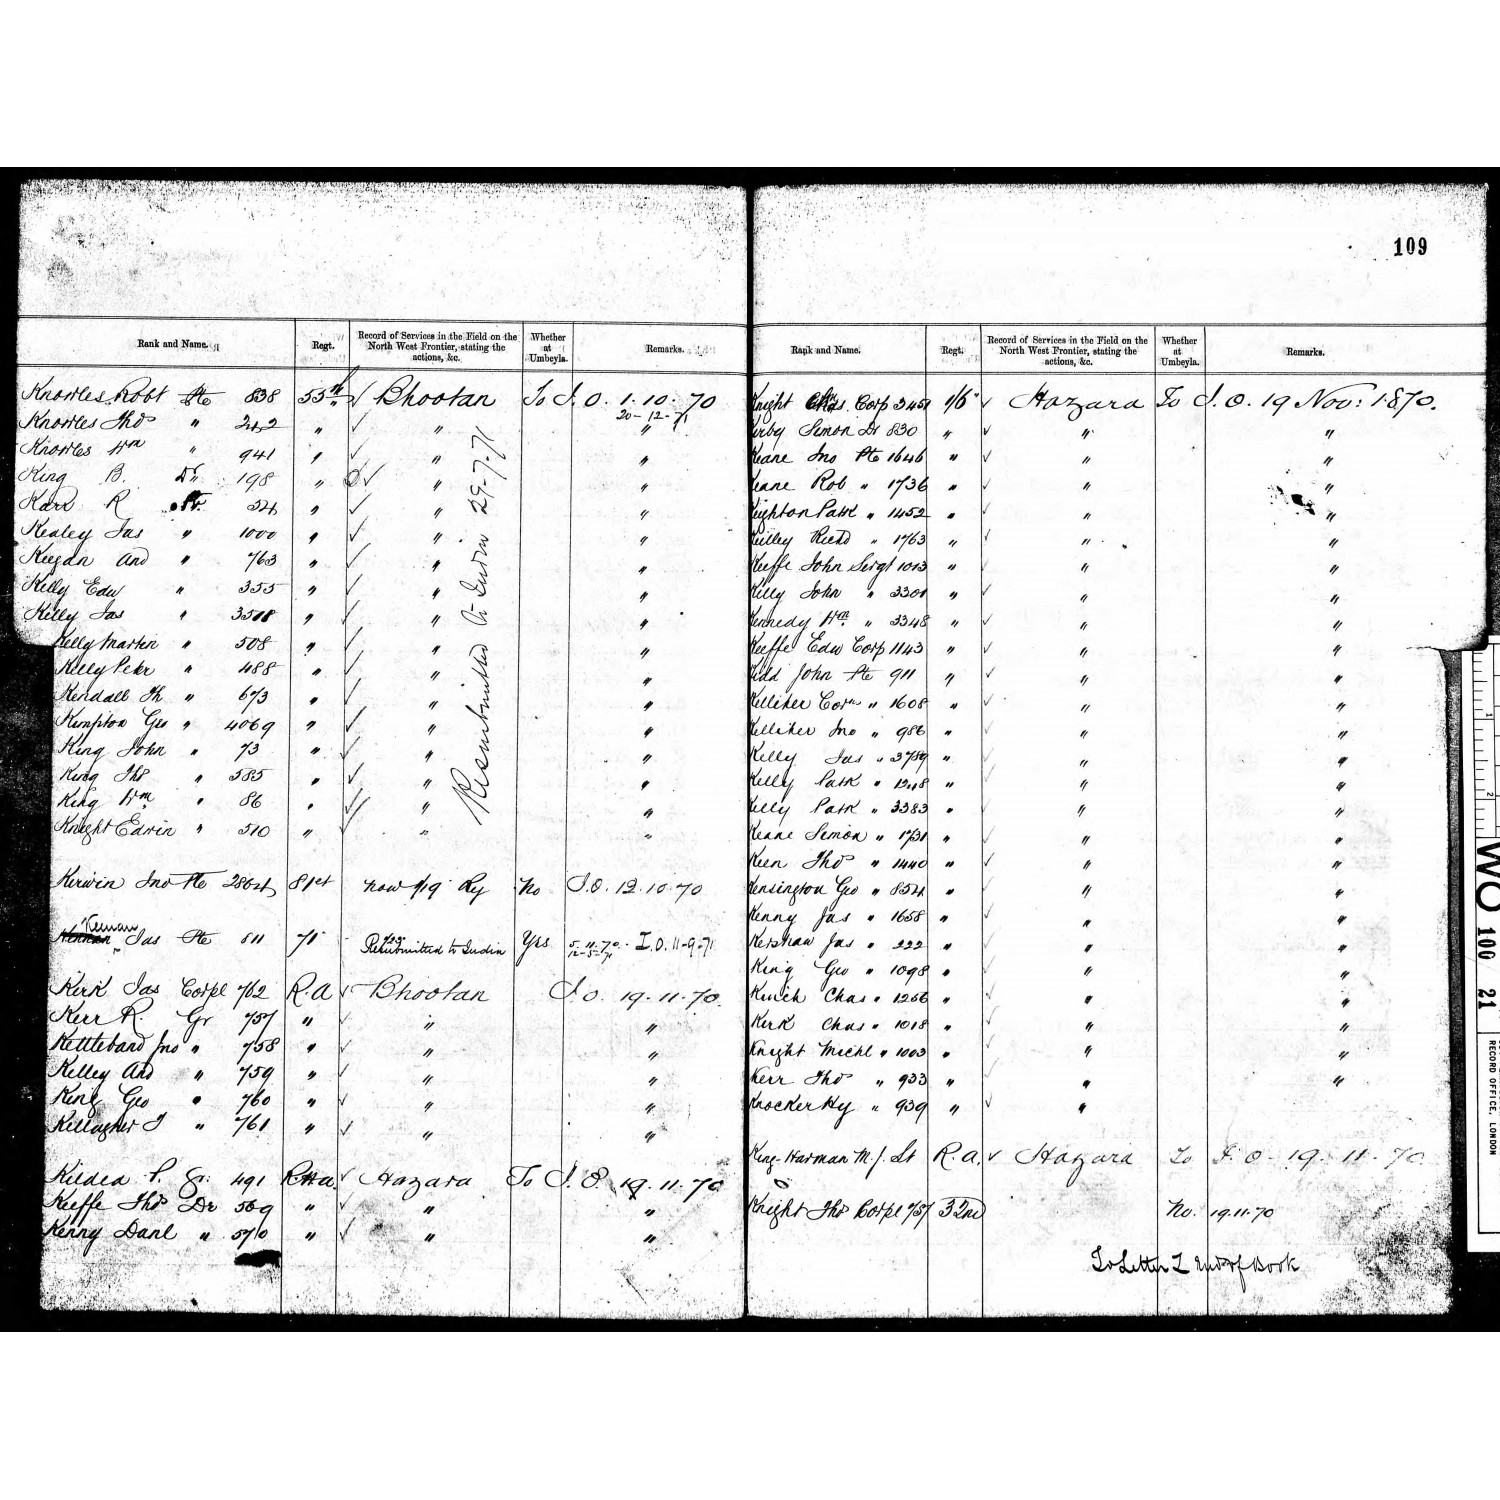 109
Rank and Name. Regt. Record of Services in the Field on the North West Frontier, stating the actions, &c. Whether at Umbeyla. Remarks.
Knowles Robt Pte 838 55th Bhootan To I.O. 1.10.70
20-12-71
Knowles Thos " 242 " " "
Knowles Wm " 941 " " "
King B. Dr 198 " " "
Karr R 324 " " "
Kealey Jas " 1000 " " "
Keegan And " 763 " " "
Kelly Edw " 355 " " "
Kelly Jas " 3518 " " "
Kelly Martin " 508 " " "
Kelly Peter " 488 " " "
Kendall Th " 673 " " "
Kimpton Geo " 4069 " " "
King John " 73 " " "
King Thos " 585 " " "
King Wm " 86 " " "
Knight Edwin " 510 " " "
Resubmitted to India 29-7-71
Kerwin Jno Pte 2864 81st now 1/19 Ry No I.O. 12.10.70
Kenan
Jas Pte 511 71 Resubmitted to India Yes 5.11.70. I.O. 11-9-71
12-5-71
Kerk Jas Corpl 762 R.A Bhootan I.O. 19.11.70
Kerr R. Gr 757 " " "
Kettleband Jno " 758 " " "
Kelley And " 759 " " "
King Geo " 760 " " "
Kellagher T " 761 " " "
Kildea P. Gr. 491 RHA. Hazara To I.O. 19.11.70
Keeffe Thos Dr 509 " " "
Kenny Danl " 570 " " "
Rank and Name. Regt. Record of Services in the Field on the North West Frontier, stating the actions, &c. Whether at Umbeyla. Remarks.
Knight Chas Corp 2451 1/6 Hazara To I.O. 19 Nov: 1870.
Kirby Simon Dr 830 " " "
Keane Jno Pte 1646 " " "
Keane Rob " 1736 " " "
Keighton Patk " 1452 " " "
Keilley Richd " 1763 " " "
Keeffe John Sergt 1013 " " "
Kelly John " 3301 " " "
Kennedy Wm " 3348 " " "
Keeffe Edw Corp 1143 " " "
Kidd John Pte 911 " " "
Kelliher Corn " 1608 " " "
Kelliher Jno " 986 " " "
Kelly Jas " 3789 " " "
Kelly Patk " 1248 " " "
Kelly Patk " 3383 " " "
Keane Simon " 1731 " " "
Keen Thos " 1440 " " "
Kensington Geo " 854 " " "
Kenny Jas " 1658 " " "
Kershaw Jas " 222 " " "
King Geo " 1098 " " "
Kinch Chas " 1256 " " "
Kerk Chas " 1018 " " "
Knight Michl " 1003 " " "
Kerr Thos " 933 " " "
Knocker Hy " 939 " "
King-Harman M.J. Lt R.A. Hazara To I.O. 19.11.70
Knight Thos Corpl 757 32nd No. 19.11.70
To Letter L End of Book
1
2
WO 100 21
RECORD OFFICE, LONDON